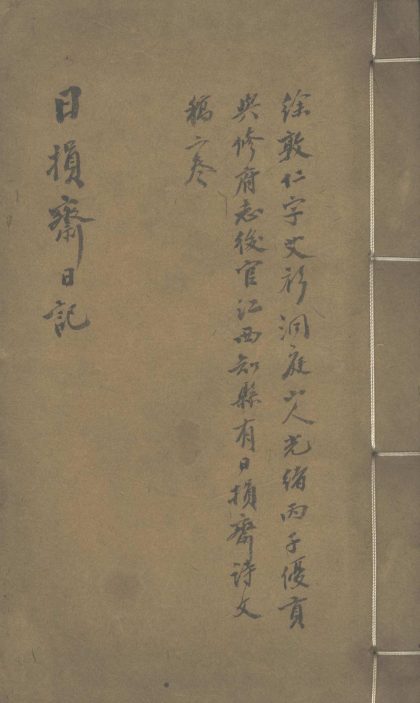 徐敦仁字史衫洞庭山人光緒丙子優貢
與修府志後官江西知縣有日損齋詩文
稿六卷
日損齋日記